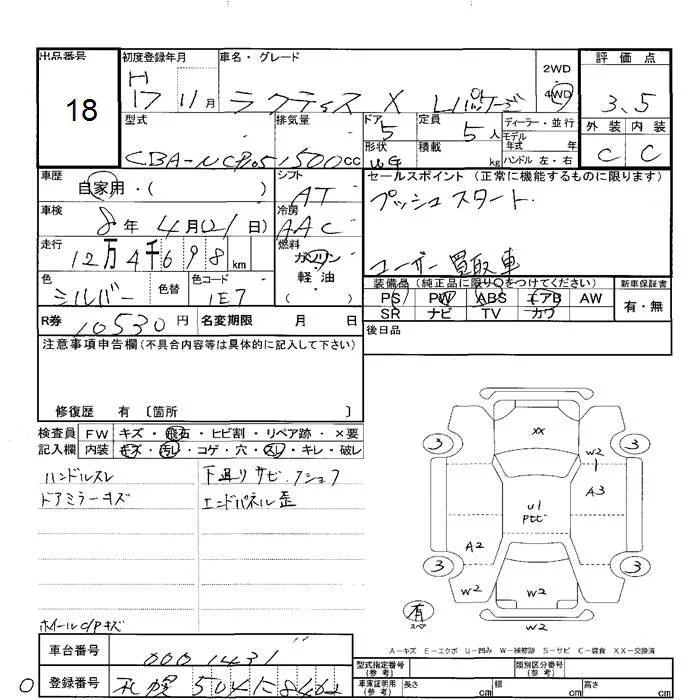 出品番号
18
初度登録年月
H
17 11月
車名・グレード
ラクティス X Lパッケージ
2WD
4WD
評価点
3.5
外装 内装
C C
型式
CBA-NCP105
排気量
1500cc
ドア
5
形状
WG
定員
5人
積載
kg
ディーラー・並行
モデル年式 年
ハンドル 左・右
車歴
自家用・( )
シフト
AT
セールスポイント (正常に機能するものに限ります)
プッシュスタート
ユーザー買取車
車検
8年4月(21日)
冷房
AAC
走行
12万4千698km
燃料
ガソリン
軽油
( )
色
シルバー
色替
色コード
1E7
装備品(純正品に限り○をつけてください)
PS PW ABS エアB AW
SR ナビ TV カワ
新車保証書
有・無
R券
10530円
名変期限 月 日
後日品
注意事項申告欄(不具合内容等は具体的に記入して下さい)
修復歴 有 〔箇所 〕
検査員
記入欄
FW キズ・飛石・ヒビ割・リペア跡・×要
内装 キズ・汚レ・コゲ・穴・スレ・キレ・破レ
ハンドルスレ
ドアミラーキズ
下廻りサビ・クショフ
エンドパネル歪
ホイールC/Pキズ
XX
3
3
W2
A3
U1
Pビ
A2
3
3
W2
W2
W2
W2
有
スペア
A-キズ E-エクボ U-凹み W-補修跡 S-サビ C-腐食 XX-交換済
車台番号
0001431
登録番号
札幌504 に 8462
型式指定番号
(参考)
類別区分番号
(参考)
車庫証明用
(参考)
長さ cm
幅 cm
高さ cm